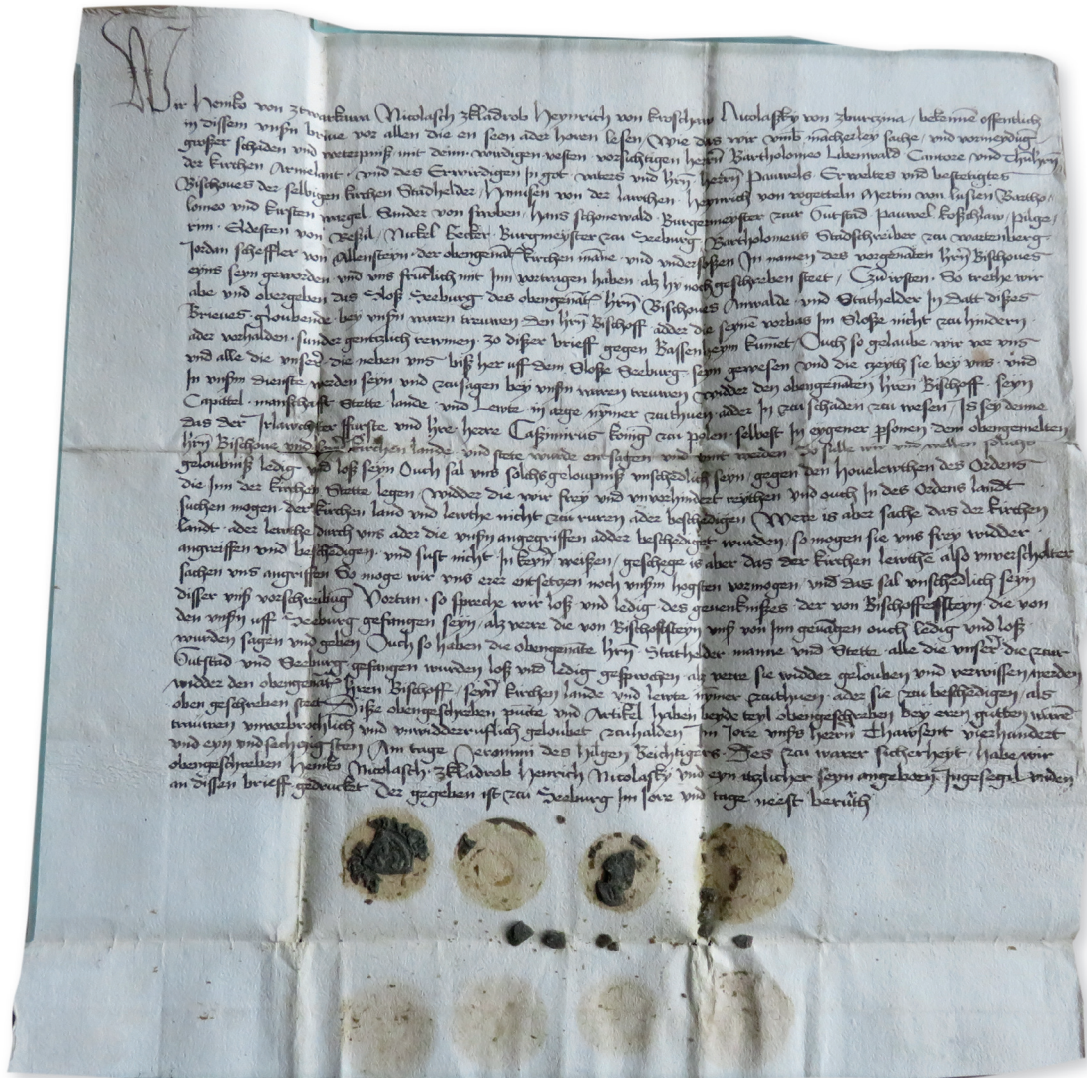 Wir Heinko von ztwarkura Nicolasch zkladrob Heynrich von kroschaw Nicolasky von zburczina bekenne offentlich
in dissem unsn brive vor allen die en seen ader horen lesen Wie das wir umb macherley sache und vormeydug
großer schaden und weterpniß mit deme wirdigen vesten vorsichtigen herrn Bartholomeo Libenwald Cantore und Thuhrn
der kirchen Armelant und des Erwirdigen In got vaters und hrn hern Pauwels Erweltes und bestetigtes
Bischoves der selbigen kirchen Stadhelder Hannsen von der lawthen Heynrich von rogetteln Mertin von lusien Bartho
lomeo und kirsten wargel Sander von siroben Hans schonewald Burgermeyster zcur Gutstad Pauwel koschlaw pilge
rim Eldesten von Resil Nickel Lecker Burgmeyster zcu Seeburg Bartholomeus Stadschreiber zcu wartenberg
Jordan scheffler von Allensteyn der obengenat kirchen mane und undersoßen In namen des vorgenaten hrn Bischoves
eyns seyn geworden und uns frutlich mit Im vortragen haben alz hy noch geschreben steet Czu irsten So trethe wir
abe und obergeben das Sloß Seeburg des obengenat hrn Bischoves Anwalde und Stathelder In datt dißes
Brieves gloubende bey unsn waren treuwen den hrn Bischoff adder die seyne vorbas Im Sloße nicht zcu hindern
ader vorhalden sunder gentzlich rewmen zo dißer brieff gegen Bassenheym kumet Ouch so gelaube wir vor uns
und alle die unser die neben uns biß her uff dem Sloße Seeburg seyn gewesen und die czeyth sie bey uns und
In unsm dienste werden seyn und zcusagen bey unsn waren treuwen widder den obengenaten hren Bischoff seyn
Capittel manschafft Stette lande und Lewte in arge nymer zcuthuen adder In zcu schaden zcu wesen Is sey denne
das der Irlawchter fuerste und hre herre Casimirus konig zcu polen selbest In eygener psonen dem obengemelten
hrn Bischove und kirchen lande und stete wurde entsagen und vint werden So sulle wir und wellen solchs
geloubniß ledig und loß seyn Ouch sal uns solchs geloupniß unschedlich seyn gegen den hovelewthen des Ordens
die Inn der kirchen Stette legen widder die wir frey und unvorhindert reythen und ouch In des Ordens landt
suchen mogen der kirchen land und lewthe nicht zcu ruren ader beschedigen Were is aber sache das der kirchen
landt ader lewthe durch uns ader die unsn angegriffen adder beschediget wurden so mogen sie uns frey widder
angreiffen und beschedigen und sust nicht In keyn weißen geschege is aber das der kirchen lewthe also unverscholter
sachen uns angriffen So moge wir uns erer entsetzen noch unsm hogsten vormogen und das sal unschedlich seyn
disser unß vorschreibug Vortan so spreche wir loß und ledig des gevenknißes der von Bischoffessteyn die von
den unsn uff Seeburg gefangen seyn alz verre die von Bischofsteyn unß von Im gevagen ouch ledig und loß
wurden sagen und geben Ouch so haben die obengenate hrn Stathelder manne und Stette alle die unser die zcur
Gutstad und Seeburg gefangen wurden loß und ledig gesprochen alz verre sie widder gelouben und verwissen werden
widder den obengenat hren Bischoff seyn kirchen lande und lewte nymer zcuthuen ader sie zcu beschedigen als
oben geschreben steet Diße obengeschreben pucte und Artikel haben beyde teyl obengeschreben bey eren gutten ware
trauwen unvorbrochlich und unwidderruflich geloubet zcuhalden Im Jore unß herrn Thawsent vierhundert
und eyn und sechczigsten Am tage Jeronimi des hilgen Beichtigers Des zcu warer sicherheyt habe wir
obengeschreben Heinko Nicolasch zkladrob Henrich Nicolasky und eyn itzlicher seyn angeboren Ingesegil unden
an dissen brieff gedrucket Der gegeben ist zcu Seeburg Im Jore und tage neest beruth